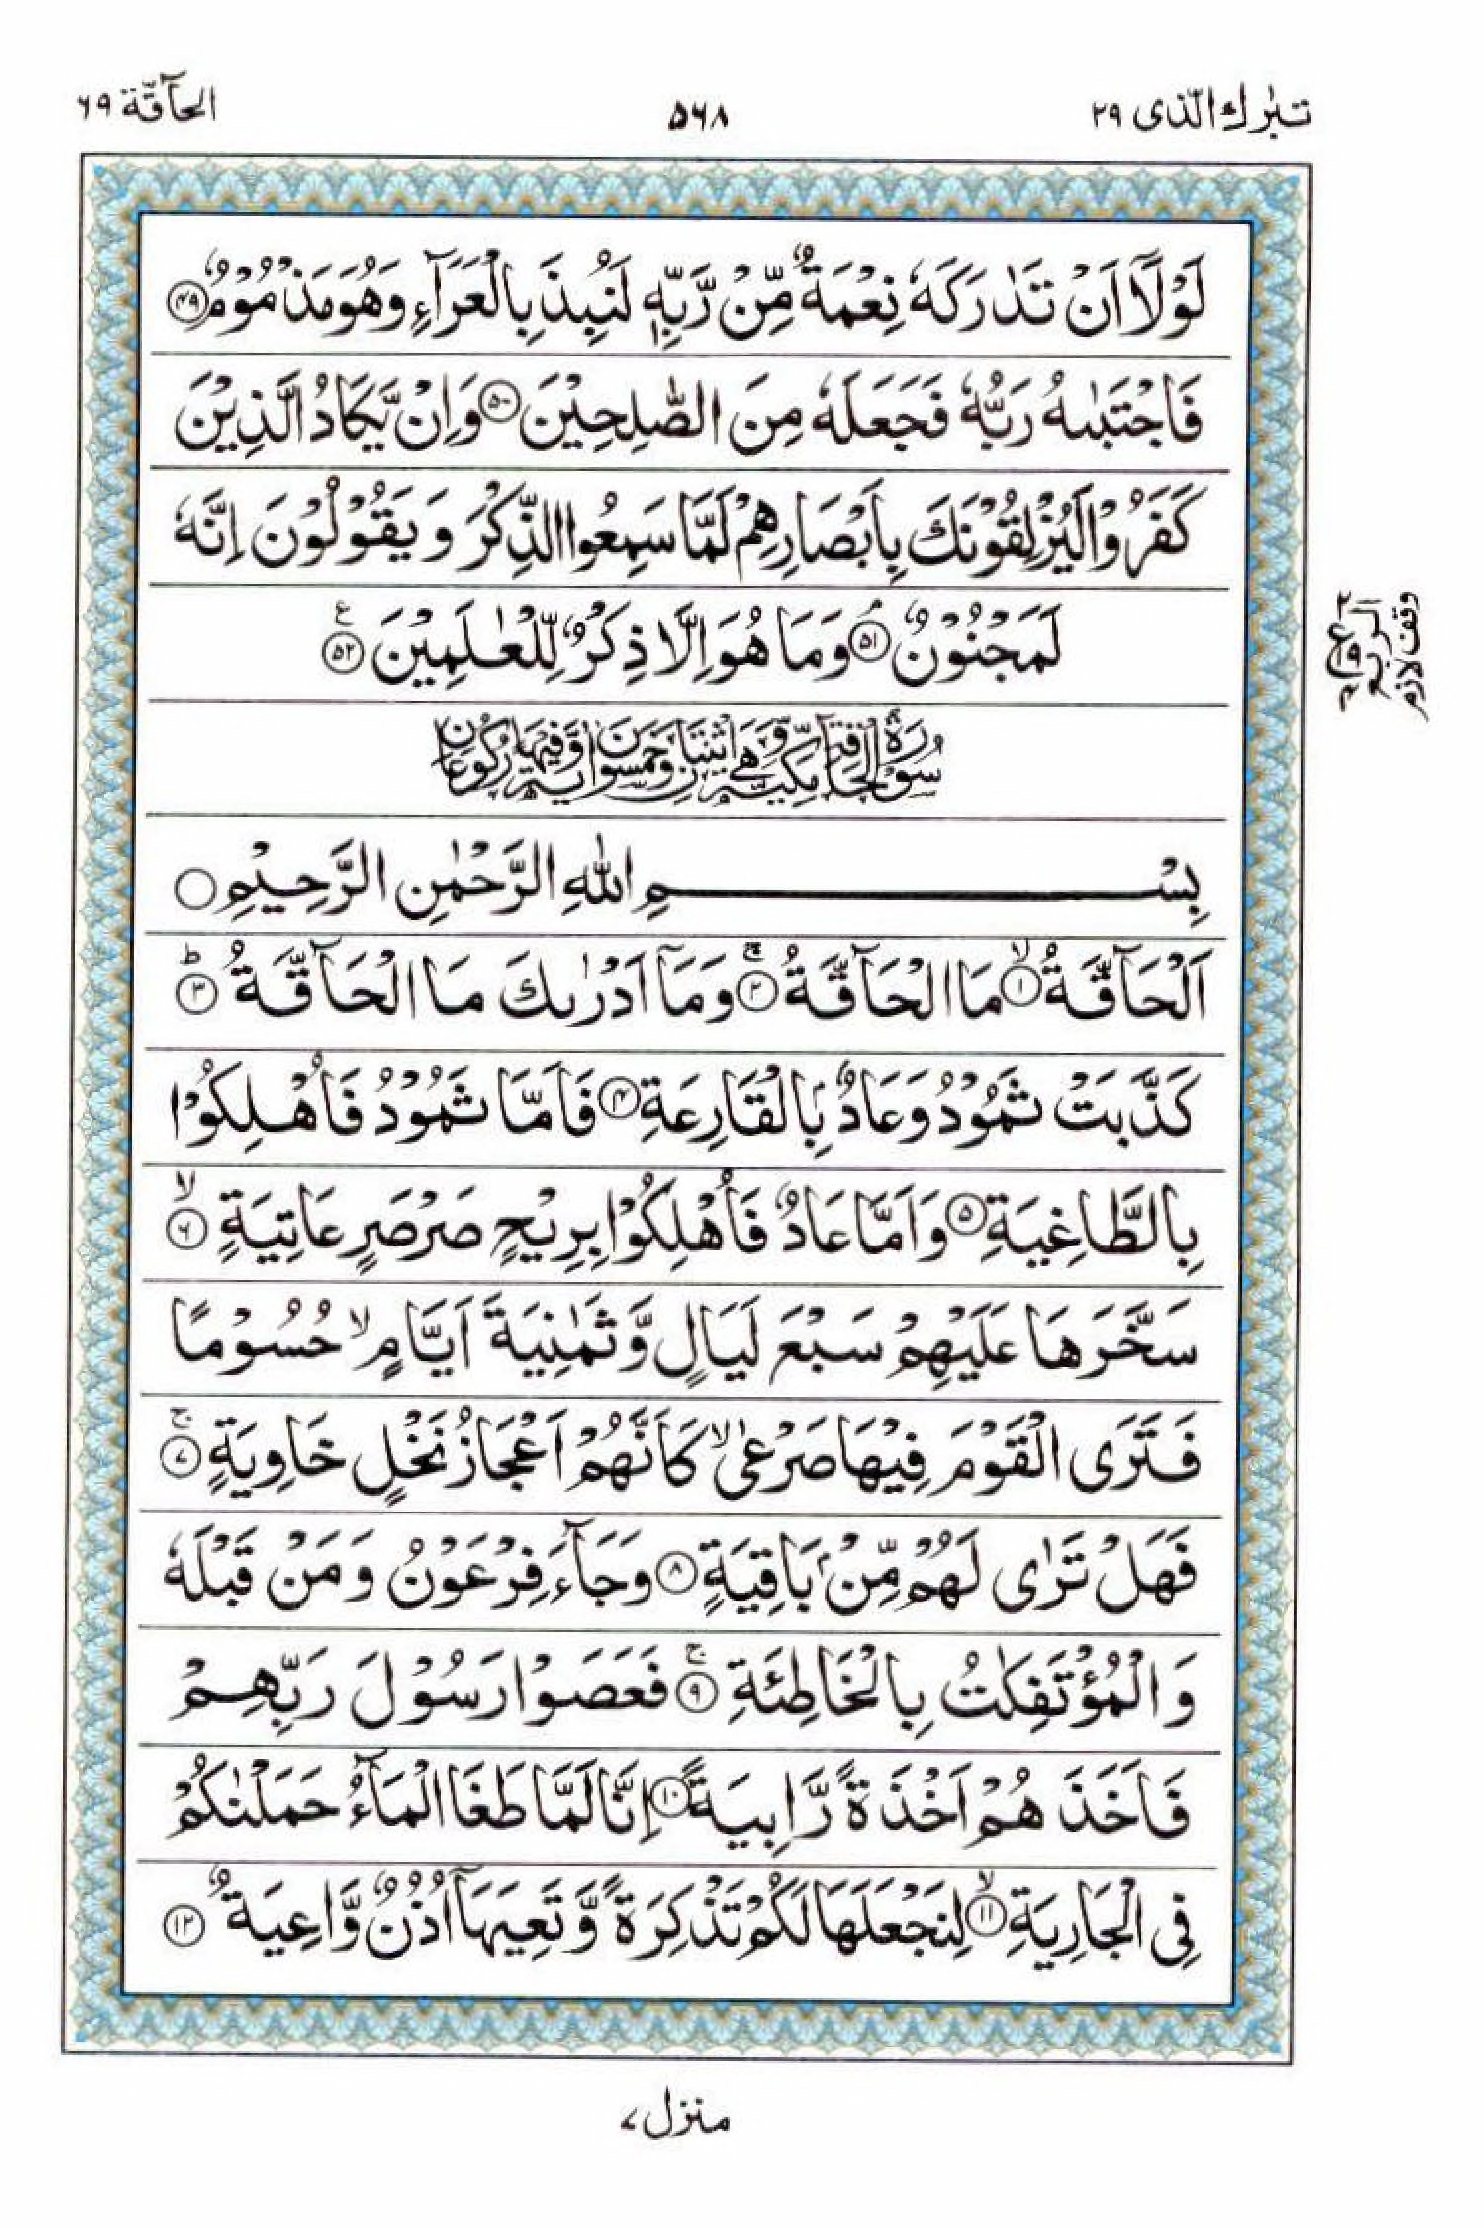 تبٰرك الّذی ٢٩
۵۶۸
الحآقّة ۶۹
لَوْلَاۤ اَنْ تَدٰرَكَهٗ نِعْمَةٌ مِّنْ رَّبِّهٖ لَنُبِذَ بِالْعَرَآءِ وَهُوَ مَذْمُوْمٌ ﴿۴۹﴾
فَاجْتَبٰىهُ رَبُّهٗ فَجَعَلَهٗ مِنَ الصّٰلِحِيْنَ ﴿۵۰﴾ وَاِنْ يَّكَادُ الَّذِيْنَ
كَفَرُوْا لَيُزْلِقُوْنَكَ بِاَبْصَارِهِمْ لَمَّا سَمِعُوا الذِّكْرَ وَيَقُوْلُوْنَ اِنَّهٗ
لَمَجْنُوْنٌ ۘ﴿۵۱﴾ وَمَا هُوَ اِلَّا ذِكْرٌ لِّلْعٰلَمِيْنَ ﴿۵۲﴾ ع
وقف لازم
الربع
سُوْرَةُ الْحَآقَّةِ مَكِّيَّةٌ وَّهِىَ اثْنَتَانِ وَخَمْسُوْنَ اٰيَةً وَّفِيْهَا رُكُوْعَانِ
بِسْمِ اللّٰهِ الرَّحْمٰنِ الرَّحِيْمِ ○
اَلْحَآقَّةُ ۙ﴿۱﴾ مَا الْحَآقَّةُ ۚ﴿۲﴾ وَمَاۤ اَدْرٰىكَ مَا الْحَآقَّةُ ؕ﴿۳﴾
كَذَّبَتْ ثَمُوْدُ وَعَادٌۢ بِالْقَارِعَةِ ﴿۴﴾ فَاَمَّا ثَمُوْدُ فَاُهْلِكُوْا
بِالطَّاغِيَةِ ﴿۵﴾ وَاَمَّا عَادٌ فَاُهْلِكُوْا بِرِيْحٍ صَرْصَرٍ عَاتِيَةٍ ۙ﴿۶﴾
سَخَّرَهَا عَلَيْهِمْ سَبْعَ لَيَالٍ وَّثَمٰنِيَةَ اَيَّامٍ ۙ حُسُوْمًا
فَتَرَى الْقَوْمَ فِيْهَا صَرْعٰى ۙ كَاَنَّهُمْ اَعْجَازُ نَخْلٍ خَاوِيَةٍ ۚ﴿۷﴾
فَهَلْ تَرٰى لَهُمْ مِّنْۢ بَاقِيَةٍ ﴿۸﴾ وَجَآءَ فِرْعَوْنُ وَمَنْ قَبْلَهٗ
وَالْمُؤْتَفِكٰتُ بِالْخَاطِئَةِ ۚ﴿۹﴾ فَعَصَوْا رَسُوْلَ رَبِّهِمْ
فَاَخَذَهُمْ اَخْذَةً رَّابِيَةً ﴿۱۰﴾ اِنَّا لَمَّا طَغَا الْمَآءُ حَمَلْنٰكُمْ
فِى الْجَارِيَةِ ۙ﴿۱۱﴾ لِنَجْعَلَهَا لَكُمْ تَذْكِرَةً وَّتَعِيَهَاۤ اُذُنٌ وَّاعِيَةٌ ﴿۱۲﴾
منزل ۷